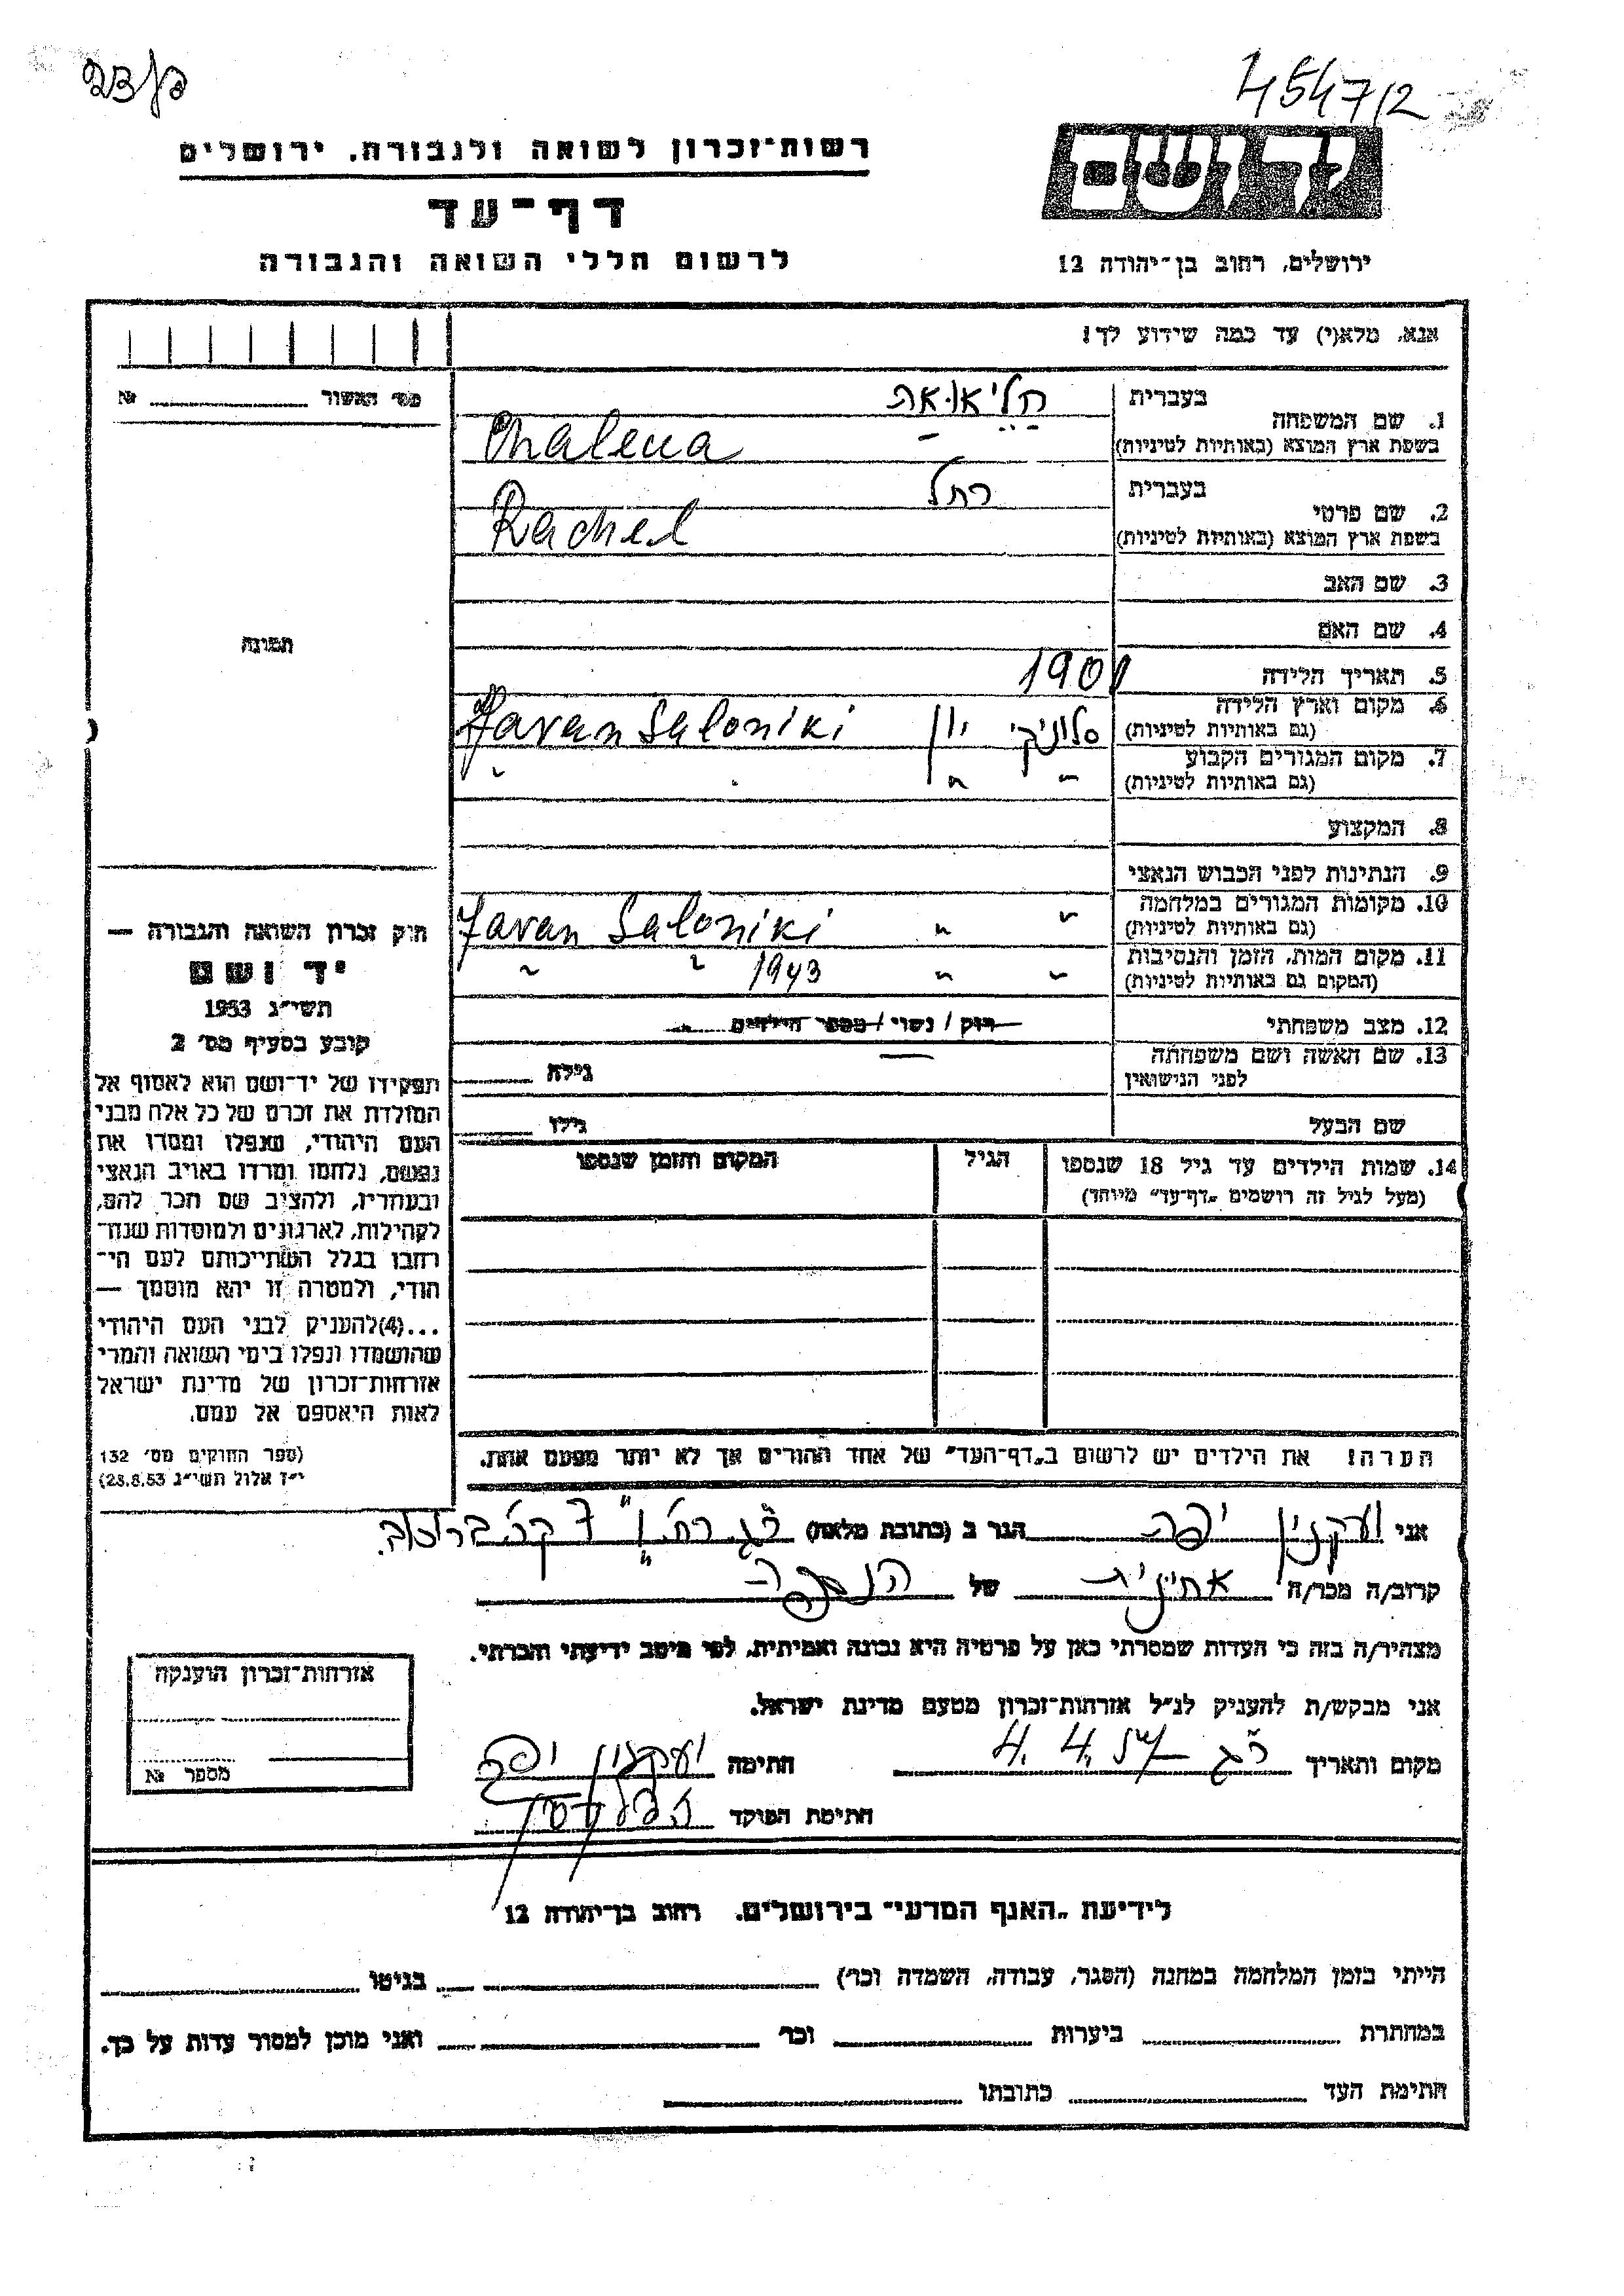 4547/2
רשות־זכרון לשואה ולגבורה, ירושלים
דף־עד
לרשום חללי השואה והגבורה
ירושלים, רחוב בן־יהודה 12
אנא, מלא(י) עד כמה שידוע לך!
מס׳ האשור № 
בעברית
1. שם המשפחה
בשפת ארץ המוצא (באותיות לטיניות) Chaleua
בעברית רחל
2. שם פרטי
בשפת ארץ המוצא (באותיות לטיניות) Rachel
3. שם האב
4. שם האם
תמונה
5. תאריך הלידה
6. מקום וארץ הלידה סלוניקי יון Javan Saloniki
(גם באותיות לטיניות)
7. מקום המגורים הקבוע " "
(גם באותיות לטיניות)
8. המקצוע
9. הנתינות לפני הכבוש הנאצי
10. מקומות המגורים במלחמה " " Javan Saloniki
(גם באותיות לטיניות)
11. מקום המות, הזמן והנסיבות " " 1943 " "
(המקום גם באותיות לטיניות)
12. מצב משפחתי רוק / נשוי / מספר הילדים
13. שם האשה ושם משפחתה גילה
לפני הנישואין
שם הבעל גילו
14. שמות הילדים עד גיל 18 שנספו הגיל המקום והזמן שנספו
(מעל לגיל זה רושמים „דף־עד״ מיוחד)
חוק זכרון השואה והגבורה —
יד ושם
תשי״ג 1953
קובע בסעיף מס׳ 2
תפקידו של יד־ושם הוא לאסוף אל
המולדת את זכרם של כל אלה מבני
העם היהודי, שנפלו ומסרו את
נפשם, נלחמו ומרדו באויב הנאצי
ובעוזריו, ולהציב שם וזכר להם,
לקהילות, לארגונים ולמוסדות שנח־
רבו בגלל השתייכותם לעם הי־
הודי, ולמטרה זו יהא מוסמך —
...(4)להעניק לבני העם היהודי
שהושמדו ונפלו בימי השואה והמרי
אזרחות־זכרון של מדינת ישראל
לאות היאספם אל עמם.
(ספר החוקים מס׳ 132
י״ז אלול תשי״ג 28.8.53)
הערה! את הילדים יש לרשום ב„דף־העד״ של אחד ההורים אך לא יותר מפעם אחת.
אני יעקנין יפה הגר ב (כתובת מלאה) ר״ג
קרוב/ה מכר/ה אחינית של הנספה
מצהיר/ה בזה כי העדות שמסרתי כאן על פרטיה היא נכונה ואמיתית, לפי מיטב ידיעתי והכרתי.
אני מבקש/ת להעניק לנ״ל אזרחות־זכרון מטעם מדינת ישראל.
מקום ותאריך ר״ג 4. 4. 57 חתימה יעקנין יפה
חתימת הפוקד
אזרחות־זכרון הוענקה
מספר №
לידיעת „האגף המדעי״ בירושלים. רחוב בן־יהודה 12
הייתי בזמן המלחמה במחנה (הסגר, עבודה, השמדה וכר׳) בגיטו
במחתרת ביערות וכר׳ ואני מוכן למסור עדות על כך.
חתימת העד כתובתו